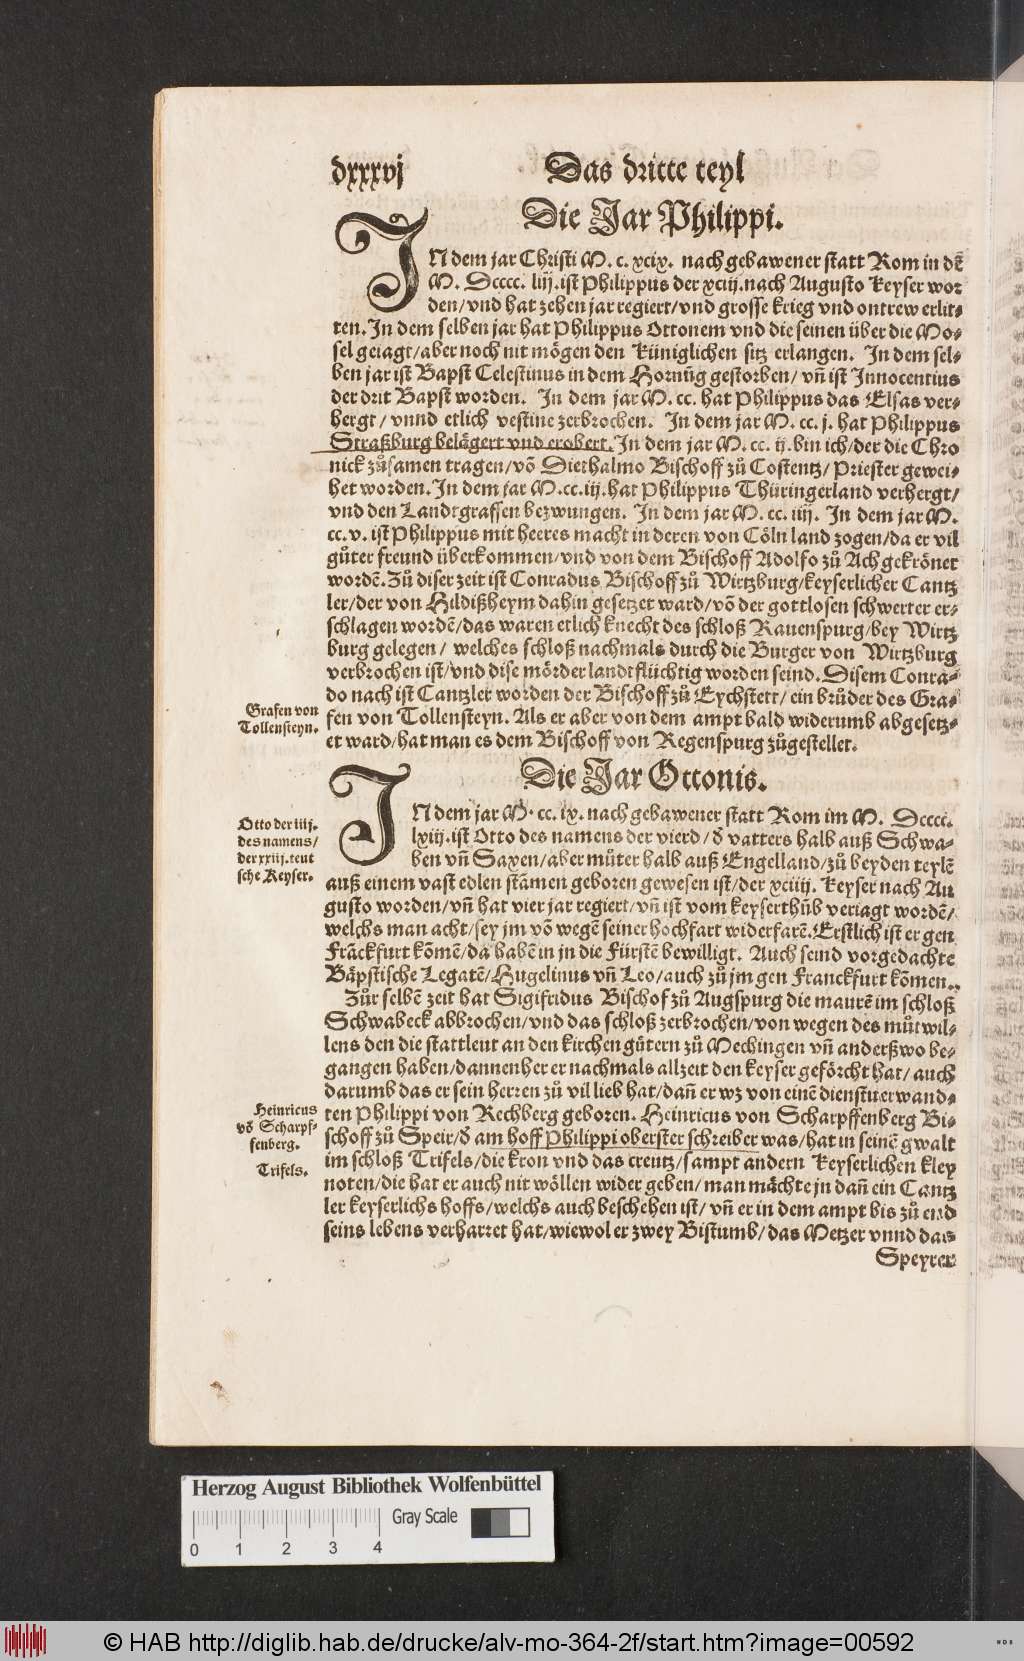 dxxxvj
Das dritte teyl
Die Jar Philippi.
JN dem jar Christi M. c. xcix. nach gebawener statt Rom in dē
M. Dcccc. liij. ist Philippus der xciij. nach Augusto Keyser wor
den/vnd hat zehen jar regiert/vnd grosse krieg vnd ontrew erlit-
ten. Jn dem selben jar hat Philippus Ottonem vnd die seinen über die Mo-
sel geiagt/aber noch nit mögen den Küniglichen sitz erlangen. Jn dem sel-
ben jar ist Bapst Celestinus in dem Hornūg gestorben/ vn̄ ist Innocentius
der drit Bapst worden. Jn dem jar M. cc. hat Philippus das Elsas ver-
hergt/ vnnd etlich vestine zerbrochen. Jn dem jar M. cc. j. hat Philippus
Straßburg belägert vnd erobert. Jn dem jar M. cc. ij. bin ich/der die Chro
nick zůsamen tragen/vō Diethalmo Bischoff zů Costentz/Priester gewei-
het worden. Jn dem jar M.cc.iij. hat Philippus Thüringerland verhergt/
vnd den Landtgraffen bezwungen. Jn dem jar M. cc. iiij. Jn dem jar M.
cc. v. ist Philippus mit heeres macht in deren von Cöln land zogen/da er vil
gůter freund überkommen/vnd von dem Bischoff Adolfo zů Ach gekrönet
wordē. Zů diser zeit ist Conradus Bischoff zů Wirtzburg/keyserlicher Cantz
ler/der von Hildißheym dahin gesetzet ward/vō der gottlosen schwerter er-
schlagen wordē/das waren etlich knecht des schloß Rauenspurg/bey Wirtz
burg gelegen/ welches schloß nachmals durch die Burger von Wirtzburg
verbrochen ist/vnd dise mörder landtflüchtig worden seind. Disem Conra-
do nach ist Cantzler worden der Bischoff zů Eychstett/ein brůder des Gra-
Grafen von
Tollensteyn.
fen von Tollensteyn. Als er aber von dem ampt bald widerumb abgesetz-
et ward/hat man es dem Bischoff von Regenspurg zůgestellet.
Die Jar Ottonis.
JN dem jar M. cc. ix. nach gebawener statt Rom im M. Dcccc.
Otto der iiij.
des namens/
der xxiij. teut
sche Keyser.
lxiij. ist Otto des namens der vierd/ď vatters halb auß Schwa-
ben vn̄ Saxen/aber můter halb auß Engelland/zů beyden teylē
auß einem vast edlen stāmen geboren gewesen ist/der xciiij. Keyser nach Au
gusto worden/vn̄ hat vier jar regiert/vn̄ ist vom keyserthūb veriagt wordē/
welchs man acht/sey jm vō wegē seiner hochfart widerfarē. Erstlich ist er gen
Frāckfurt kōmē/da habē in jn die Fürstē bewilligt. Auch seind vorgedachte
Bäpstische Legatē/Hugelinus vn̄ Leo/auch zů jm gen Franckfurt kōmen.
Zůr selbē zeit hat Sigifridus Bischof zů Augspurg die maurē im schloß
Schwabeck abbrochen/vnd das schloß zerbrochen/von wegen des můtwil-
lens den die stattleut an den kirchen gütern zů Mechingen vn̄ anderßwo be-
gangen haben/dannenher er nachmals allzeit den keyser geförcht hat/ auch
darumb das er sein herren zů vil lieb hat/dan̄ er wz von einē dienstuerwand-
Heinricus
vō Scharpf-
fenberg.
ten Philippi von Rechberg geboren. Heinricus von Scharpffenberg Bi-
schoff zů Speir/ď am hoff Philippi oberster schreiber was/hat in seinē gwalt
Trifels.
im schloß Trifels/die kron vnd das creutz/sampt andern Keyserlichen kley
noten/die hat er auch nit wöllen wider geben/man mächte jn dan̄ ein Cantz
ler keyserlichs hoffs/welchs auch beschehen ist/ vn̄ er in dem ampt bis zů end
seins lebens verharret hat/wiewol er zwey Bistumb/das Metzer vnnd das
Speyrer
Herzog August Bibliothek Wolfenbüttel
Gray Scale
0 1 2 3 4
© HAB http://diglib.hab.de/drucke/alv-mo-364-2f/start.htm?image=00592